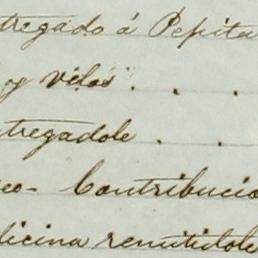 tregado á Pepita
y velas . . .
tregadole . .
eo- Contribucio
dicina remitidole